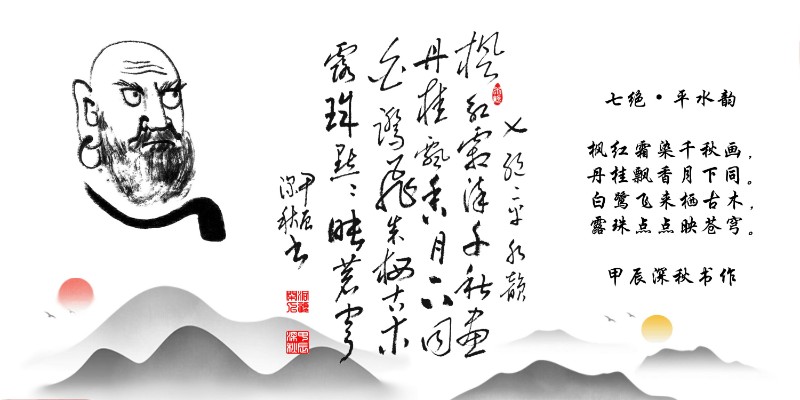 七绝·平水韵
枫红霜染千秋画
丹桂飘香月下同
白鹭飞来栖古木
露珠点点映苍穹
甲辰
深秋书
甲辰
深秋
七绝·平水韵
枫红霜染千秋画，
丹桂飘香月下同。
白鹭飞来栖古木，
露珠点点映苍穹。
甲辰深秋书作